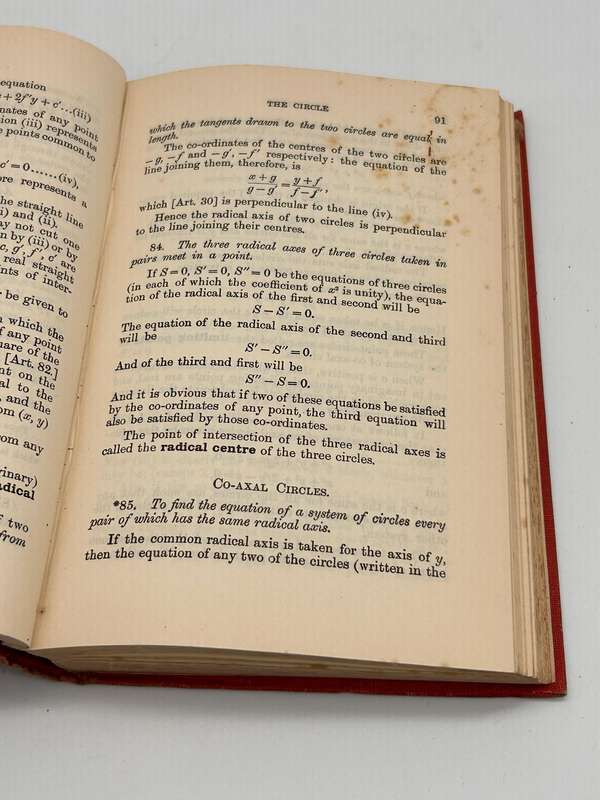 equation
+ 2f′y + c′...(iii)
nates of any point
ion (iii) represents
e points common to
c′ = 0......(iv),
ore represents a
the straight line
i) and (ii).
ay not cut one
n by (iii) or by
c, g′, f′, c′ are
real straight
nts of inter-
be given to
n which the
f any point
uare of the
[Art. 82.]
nt on the
al to the
, and the
om (x, y)
rom any
rinary)
adical
f two
from
THE CIRCLE
91
which the tangents drawn to the two circles are equal in
length.
The co-ordinates of the centres of the two circles are
−g, −f and −g′, −f′ respectively: the equation of the
line joining them, therefore, is
(x + g)/(g − g′) = (y + f)/(f − f′),
which [Art. 30] is perpendicular to the line (iv).
Hence the radical axis of two circles is perpendicular
to the line joining their centres.
84. The three radical axes of three circles taken in
pairs meet in a point.
If S = 0, S′ = 0, S″ = 0 be the equations of three circles
(in each of which the coefficient of x² is unity), the equa-
tion of the radical axis of the first and second will be
S − S′ = 0.
The equation of the radical axis of the second and third
will be
S′ − S″ = 0.
And of the third and first will be
S″ − S = 0.
And it is obvious that if two of these equations be satisfied
by the co-ordinates of any point, the third equation will
also be satisfied by those co-ordinates.
The point of intersection of the three radical axes is
called the radical centre of the three circles.
CO-AXAL CIRCLES.
*85. To find the equation of a system of circles every
pair of which has the same radical axis.
If the common radical axis is taken for the axis of y,
then the equation of any two of the circles (written in the